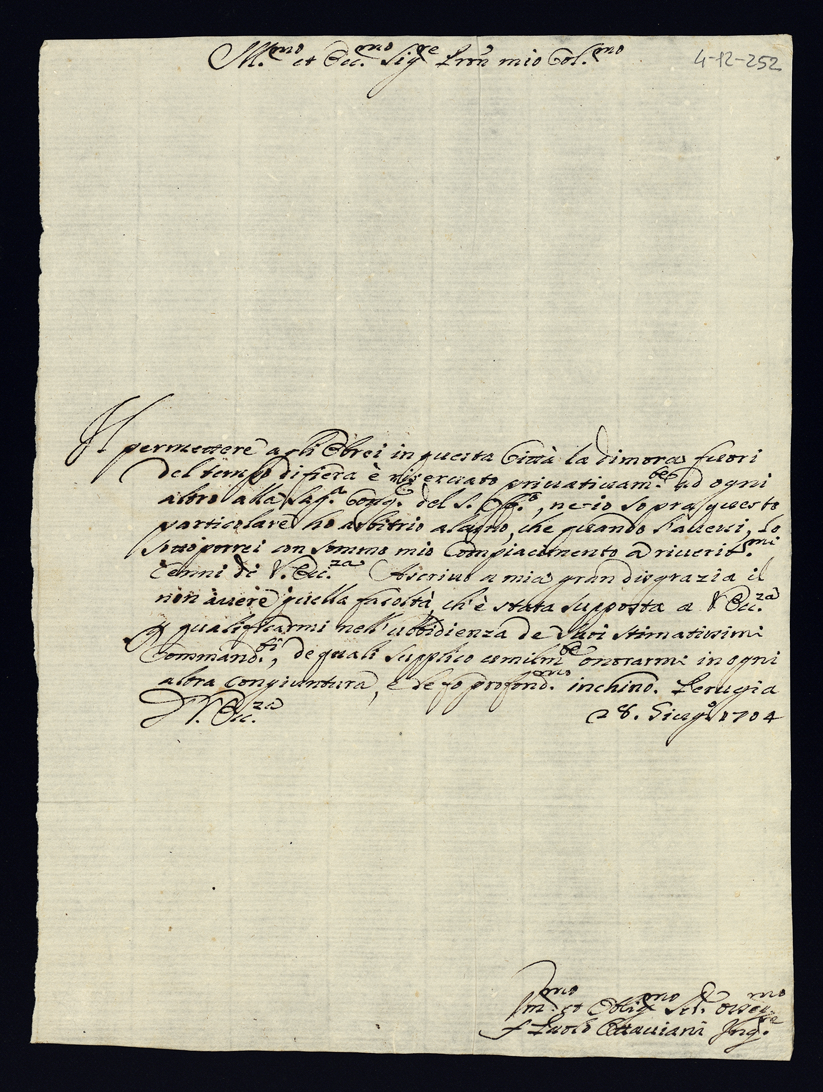 Ill.mo et Ecc.mo Sig.re P̃ron mio Col.mo
4-12-252
Il permettere agli Ebrei in questa Città la dimora fuori
del tempo di fiera è riservato privativam.te ad ogni
altro alla Sag.a Cong.e del S. Off.o, ne io sopra questo
particolare hò arbitrio alcuno, che quando l'avessi, lo
sottoporrei con sommo mio Compiacimento à riverit.mi
Cenni di V. Ecc.za Ascrivo a mia gran disgrazia il
non avere quella facoltà, ch'è stata supposta a V. Ecc.za
qualificarmi nell'ubbidienza de suoi stimatissimi
Command.ti, de quali supplico umilm.te onorarmi in ogni
altra congiuntura, e le fo profond.mo inchino. Perugia
D V. Ecc.za 28. Giug.o 1704
Um.mo et Oblig.mo Ser.e osseq.mo
f Paolo Ottaviani Inq.re